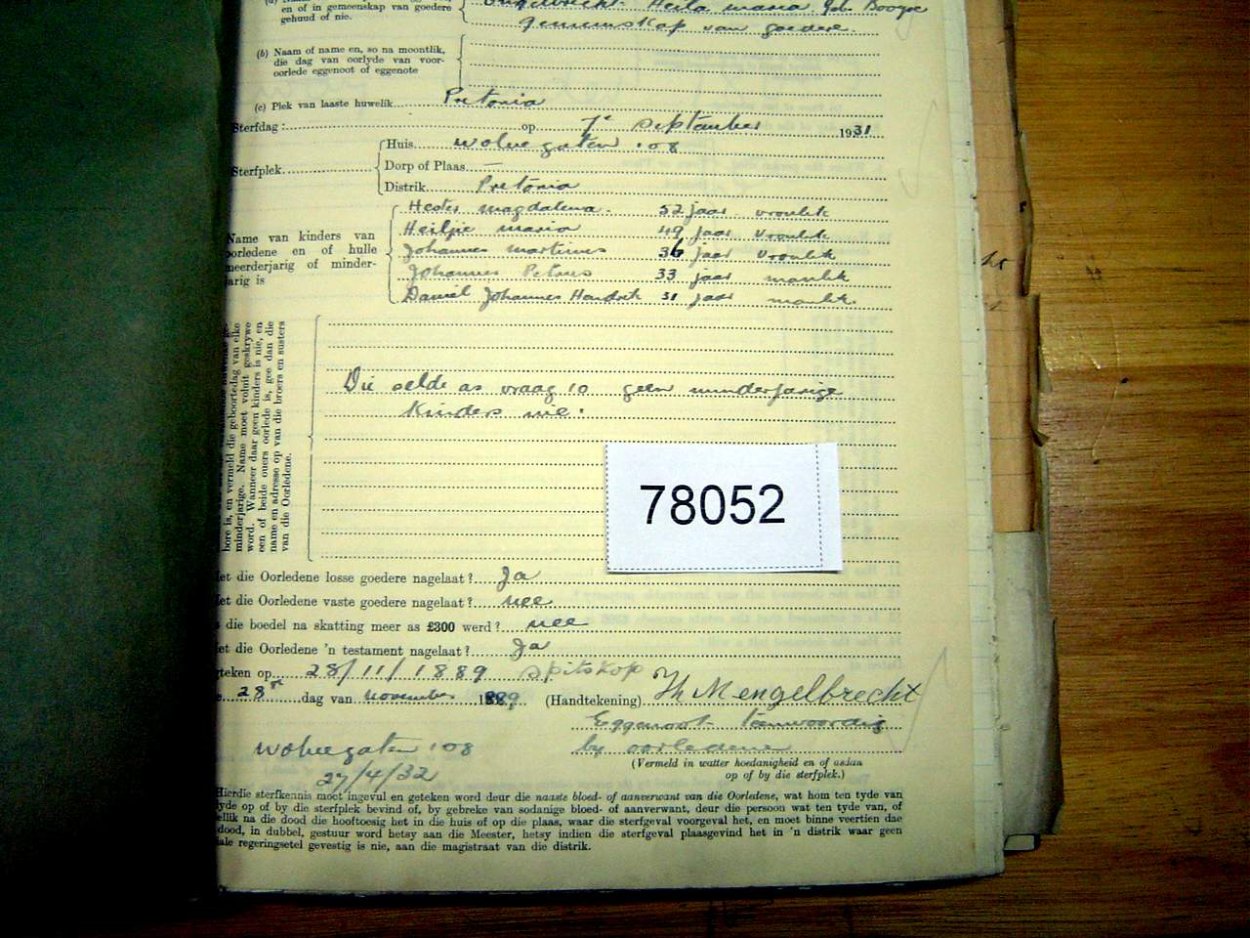 en of in gemeenskap van goedere
gehuud of nie.
Engelbrecht. Heila maria geb. Booyse
gemeenskap van goedere.
(b) Naam of name en, so na moontlik,
die dag van oorlyde van voor-
oorlede eggenoot of eggenote
(c) Plek van laaste huwelik Pretoria
Sterfdag: op 7e September 1931
Sterfplek
Huis wolvegaten 108
Dorp of Plaas —
Distrik Pretoria
Name van kinders van
oorledene en of hulle
meerderjarig of minder-
jarig is
Hester magdalena. 52 jaar vroulik
Heiljie maria 49 jaar vroulik
Johannes martinus 36 jaar vroulik
Johannes Petrus 33 jaar manlik
Daniel Johannes Hendrik 31 jaar manlik
bore is, en vermeld die geboortedag van elke
minderjarige. Name moet voluit geskrywe
word. Wanneer daar geen kinders is nie, en
een of beide ouers oorlede is, gee dan die
name en adresse op van die broers en susters
van die Oorledene.
Die selde as vraag 10 geen minderjarige
kinders nie.
78052
et die Oorledene losse goedere nagelaat? Ja
et die Oorledene vaste goedere nagelaat? nee
die boedel na skatting meer as £300 werd? nee
et die Oorledene 'n testament nagelaat? Ja
teken op 28/11/1889 Spitskop
28st dag van november 1889 (Handtekening) Th M Engelbrecht
Eggenoot teenwoordig
by oorledene
(Vermeld in watter hoedanigheid en of asdan
op of by die sterfplek.)
wolvegaten 108
27/4/32
Hierdie sterfkennis moet ingevul en geteken word deur die naaste bloed- of aanverwant van die Oorledene, wat hom ten tyde van
lyde op of by die sterfplek bevind of, by gebreke van sodanige bloed- of aanverwant, deur die persoon wat ten tyde van, of
ellik na die dood die hooftoesig het in die huis of op die plaas, waar die sterfgeval voorgeval het, en moet binne veertien dae
dood, in dubbel, gestuur word hetsy aan die Meester, hetsy indien die sterfgeval plaasgevind het in 'n distrik waar geen
ale regeringsetel gevestig is nie, aan die magistraat van die distrik.